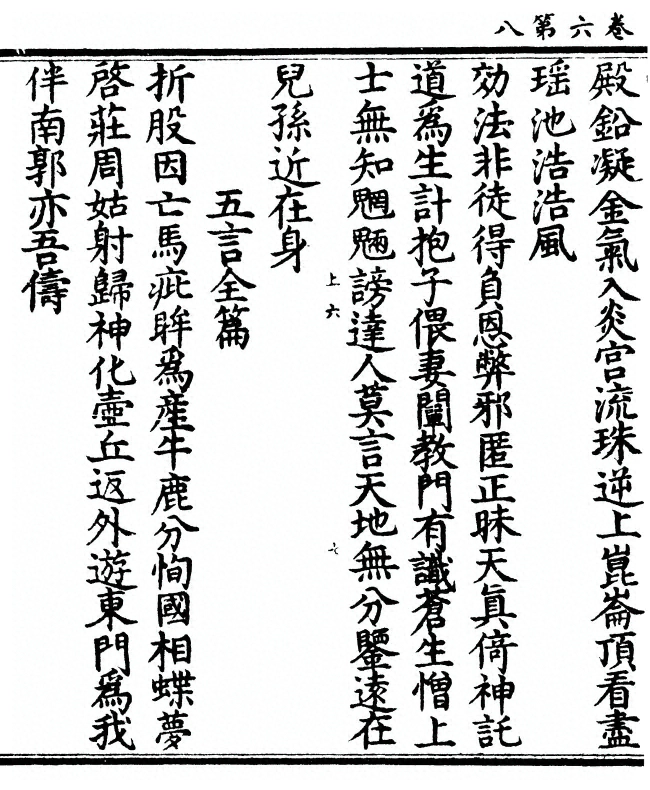 卷六第八
殿鉛凝金氣入炎宮流珠逆上崑崙頂看盡
瑶池浩浩風
効法非徒得負恩弊邪匿正昧天眞倚神託
道爲生計抱子偎妻闡教門有識蒼生憎上
士無知魍魎謗達人莫言天地無分鑒遠在
上六
七
兒孫近在身
五言全篇
折股因亡馬疵眸爲産牛鹿分恂國相蝶夢
啓莊周姑射歸神化壷丘返外遊東門爲我
伴南郭亦吾儔